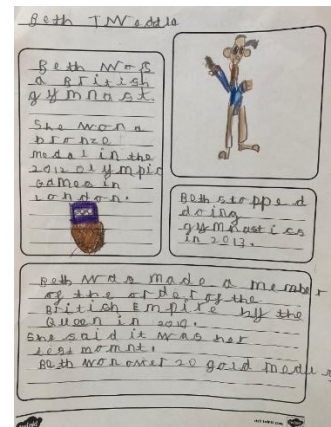 Beth Tweddle
Beth was
a British
gymnast.
She won a
bronze
medal in the
2012 olympic
Games in
London.
Beth stopped
doing
gymnastics
in 2013.
Beth was made a member
of the order of the
British Empire by the
Queen in
She said it was her
best momnt.
Beth won over 20 gold